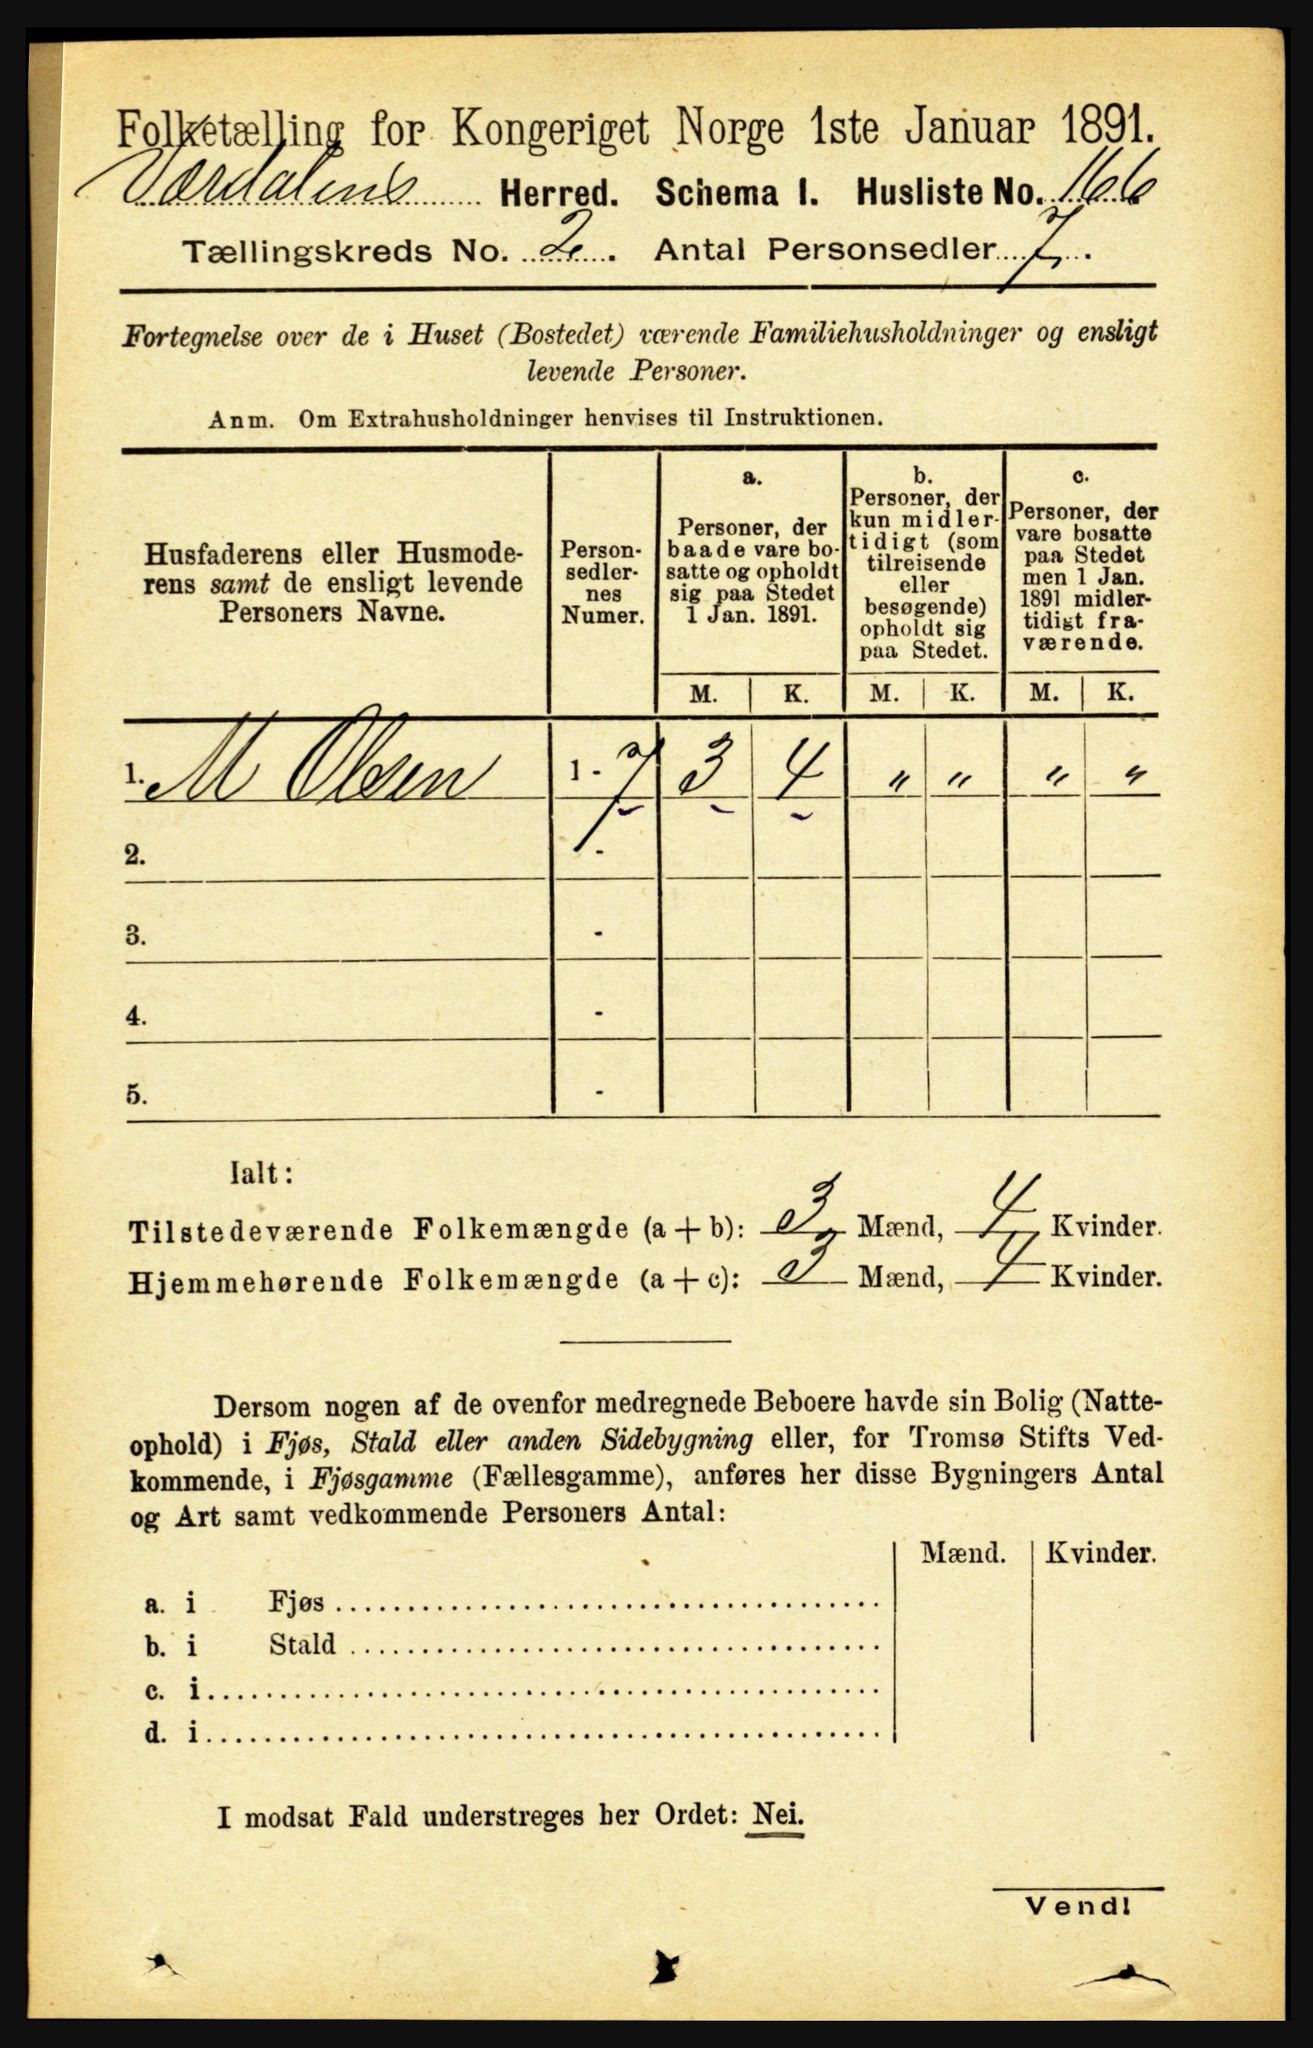 Folketælling for Kongeriget Norge 1ste Januar 1891.
Værdalens Herred. Schema I. Husliste No. 166
Tællingskreds No. 2. Antal Personsedler 7.
Fortegnelse over de i Huset (Bostedet) værende Familiehusholdninger og ensligt
levende Personer.
Anm. Om Extrahusholdninger henvises til Instruktionen.
Husfaderens eller Husmode-
rens samt de ensligt levende
Personers Navne.
Person-
sedler-
nes
Numer.
a.
Personer, der
baade vare bo-
satte og opholdt
sig paa Stedet
1 Jan. 1891.
b.
Personer, der
kun midler-
tidigt (som
tilreisende
eller
besøgende)
opholdt sig
paa Stedet.
c.
Personer, der
vare bosatte
paa Stedet
men 1 Jan.
1891 midler-
tidigt fra-
værende.
M. K. M. K. M. K.
1. M Olsen 1 - 7 3 4 " " " "
2. -
3. -
4. -
5. -
Ialt:
Tilstedeværende Folkemængde (a + b): 3 Mænd, 4 Kvinder.
Hjemmehørende Folkemængde (a + c): 3 Mænd, 4 Kvinder.
Dersom nogen af de ovenfor medregnede Beboere havde sin Bolig (Natte-
ophold) i Fjøs, Stald eller anden Sidebygning eller, for Tromsø Stifts Ved-
kommende, i Fjøsgamme (Fællesgamme), anføres her disse Bygningers Antal
og Art samt vedkommende Personers Antal:
Mænd. Kvinder.
a. i Fjøs
b. i Stald
c. i
d. i
I modsat Fald understreges her Ordet: Nei.
Vend!